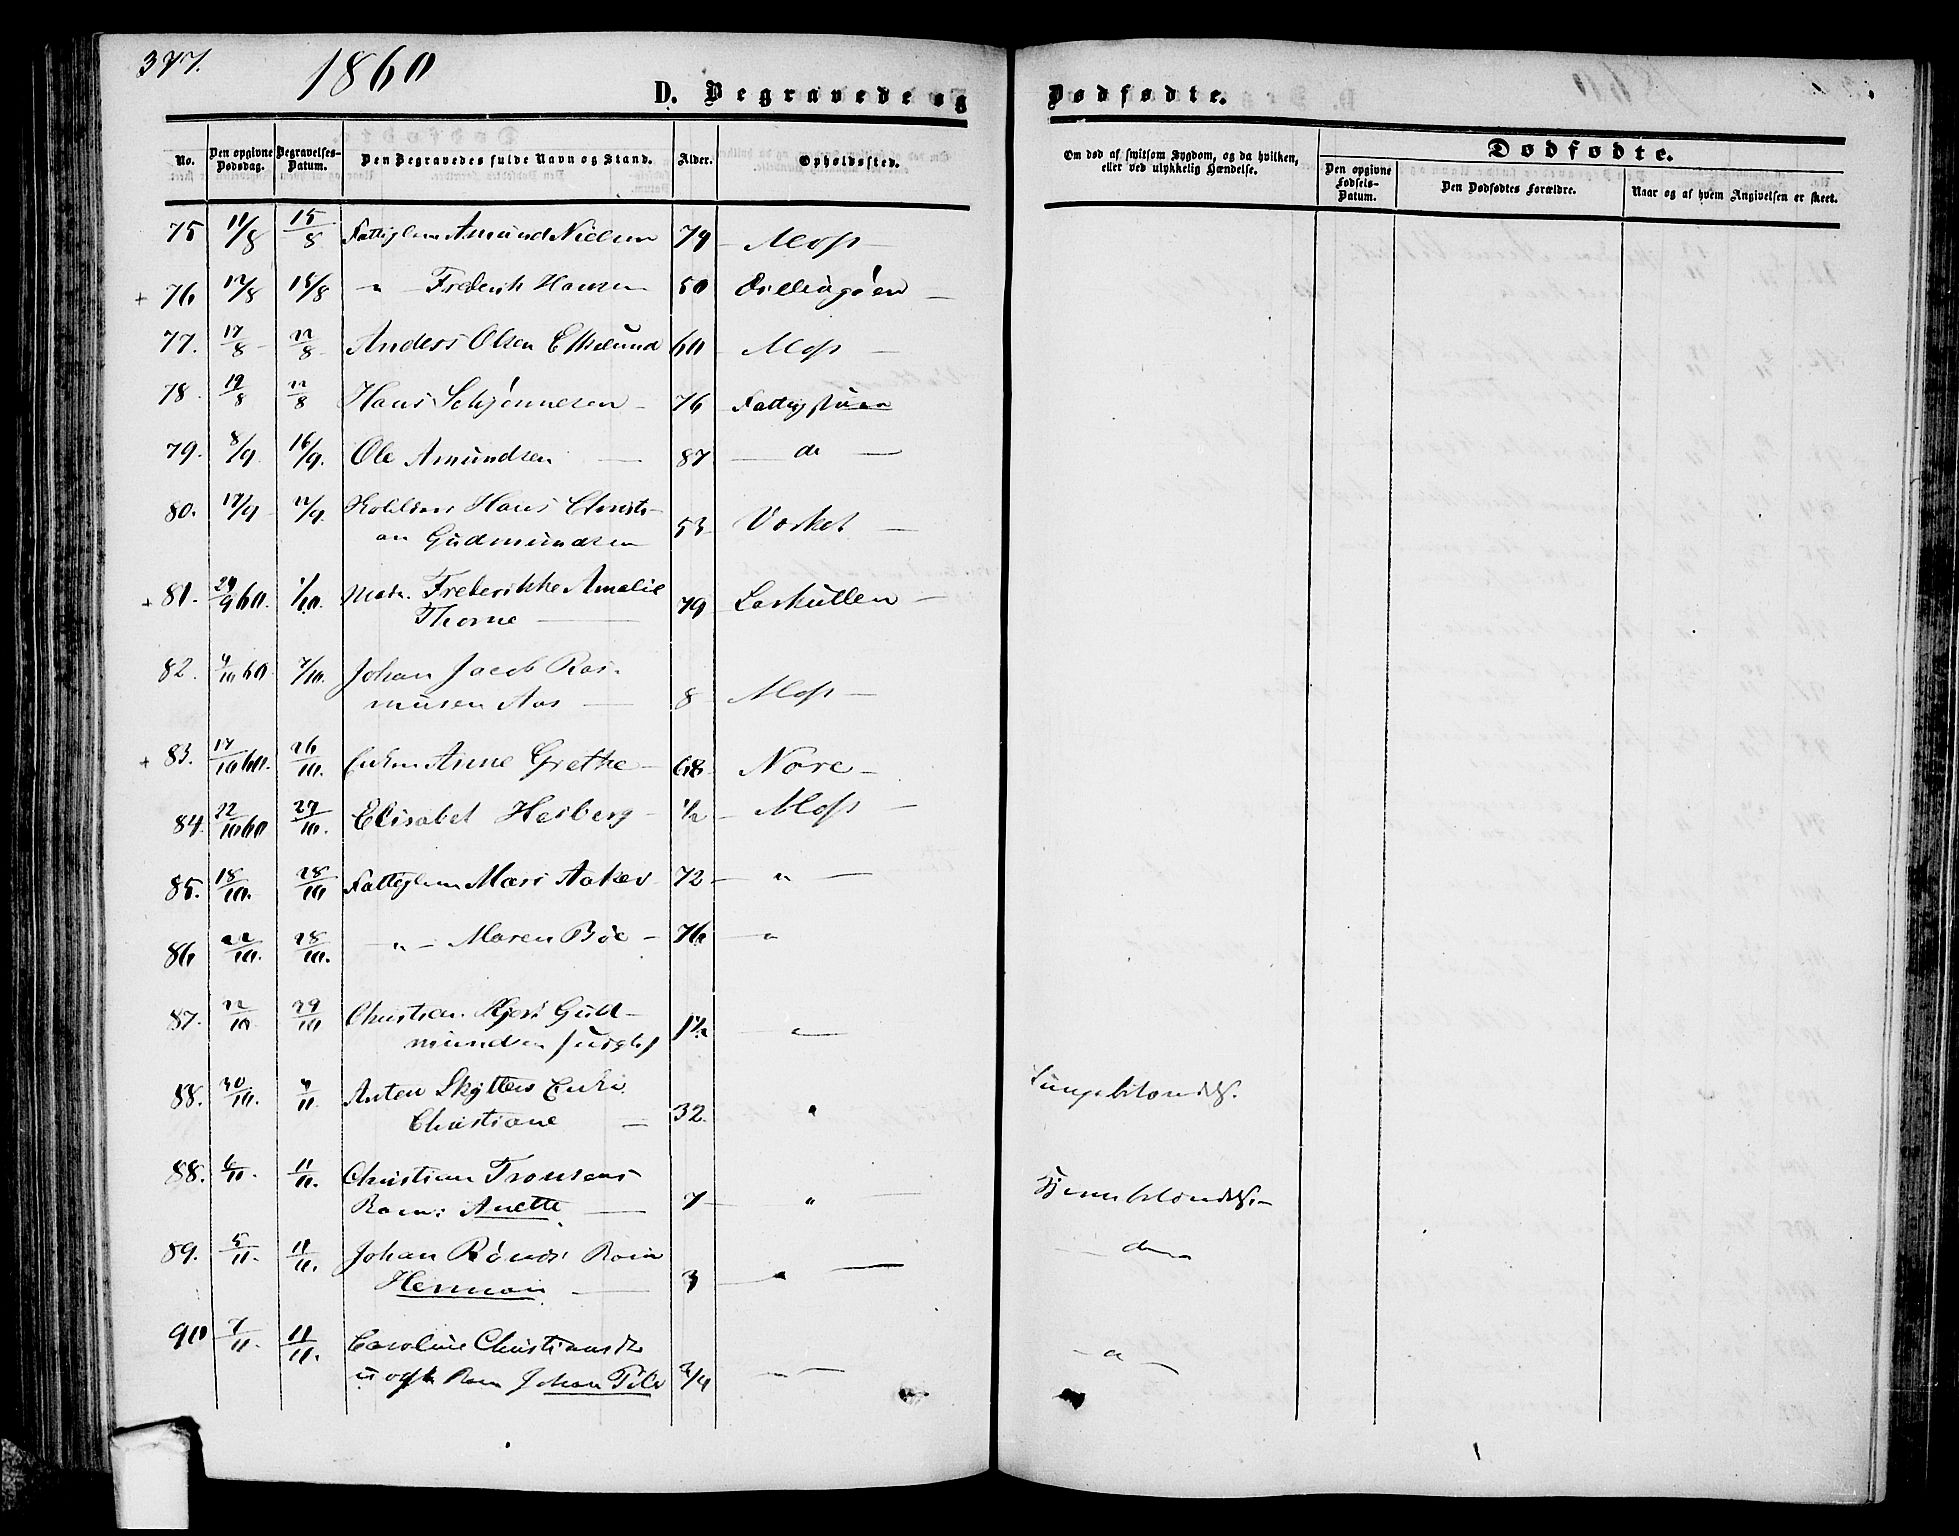 377.
1860
D. Begravede og Dødfødte.
No. Den opgivne Dødsdag. Begravelses-Datum. Den Begravedes fulde Navn og Stand. Alder. Opholdssted. Om død af smitsom Sygdom, og da hvilken, eller ved ulykkelig Hændelse. Dødfødte.
Den opgivne Fødsels-Datum. Den Dødfødtes Forældre. Naar og af hvem Angivelsen er skeet.
75 11/8 15/8 Fattiglem Amund Nielsen 79 Moss
+ 76 12/8 18/8 " Frederik Hansen 50
77. 17/8 22/8 Anders Olsen 60 Moss
78. 19/8 22/8 Hans Schjønnesen 76 Fattigstuen
79. 8/9 16/9. Ole Amundsen 87 do
80. 17/9 /9. Hans Christi-
an Gudmundsen 53 Vosket
+ 81. 29/9 60. 1/10. Frederikke Amalie
Thorne 79 Laskullen
82. 4/10 60 7/10. Johan Jacob Ras-
musen Aas 8 Moss
+ 83. 17/10 60. 26/10. Enken Anne Grethe 68 Nore
84. 22/10 60 27/10. Elisabet Heiberg 1/2 Moss
85. 18/10. 28/10 Fattiglem Mari Aakes 72 "
86 22/10. 28/10. " Maren Bøe 76 "
87. 22/10 29/10 Christian Gud-
mundsen 1 1/2 "
88. 30/10. 4/11. Anton Skytters Enke
Christiane 32. " Lungebetændels.
88. 6/11. 11/11. Christian Tronsens
Barn: Anette 7 "
89. 5/11. 11/11. Johan Rønds Barn
Herman 3 "
90 7/11. 11/11. Caroline Christiansd
uægt Barn Johan 3/4